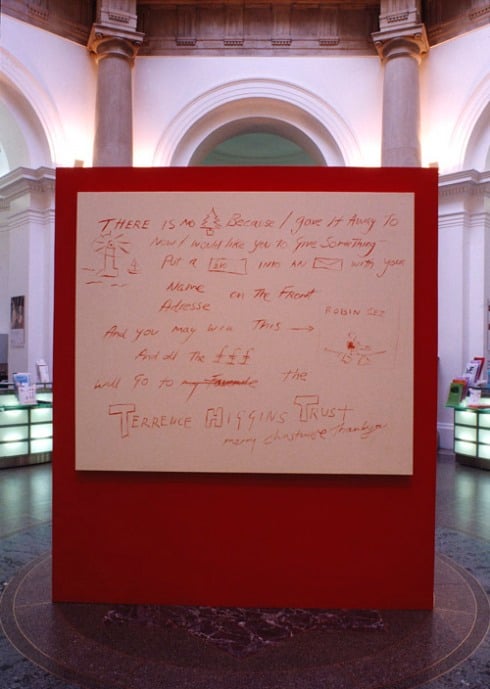 THERE IS NO Because I gave It Away To
Now I would like you to Give Something-
Put a INTO AN with your
Name on The Front
Adresse
ROBIN SEZ
And you may win This →
And all The £££
will Go to my Favourite the
TERRENCE HIGGINS TRUST
merry Thankyou